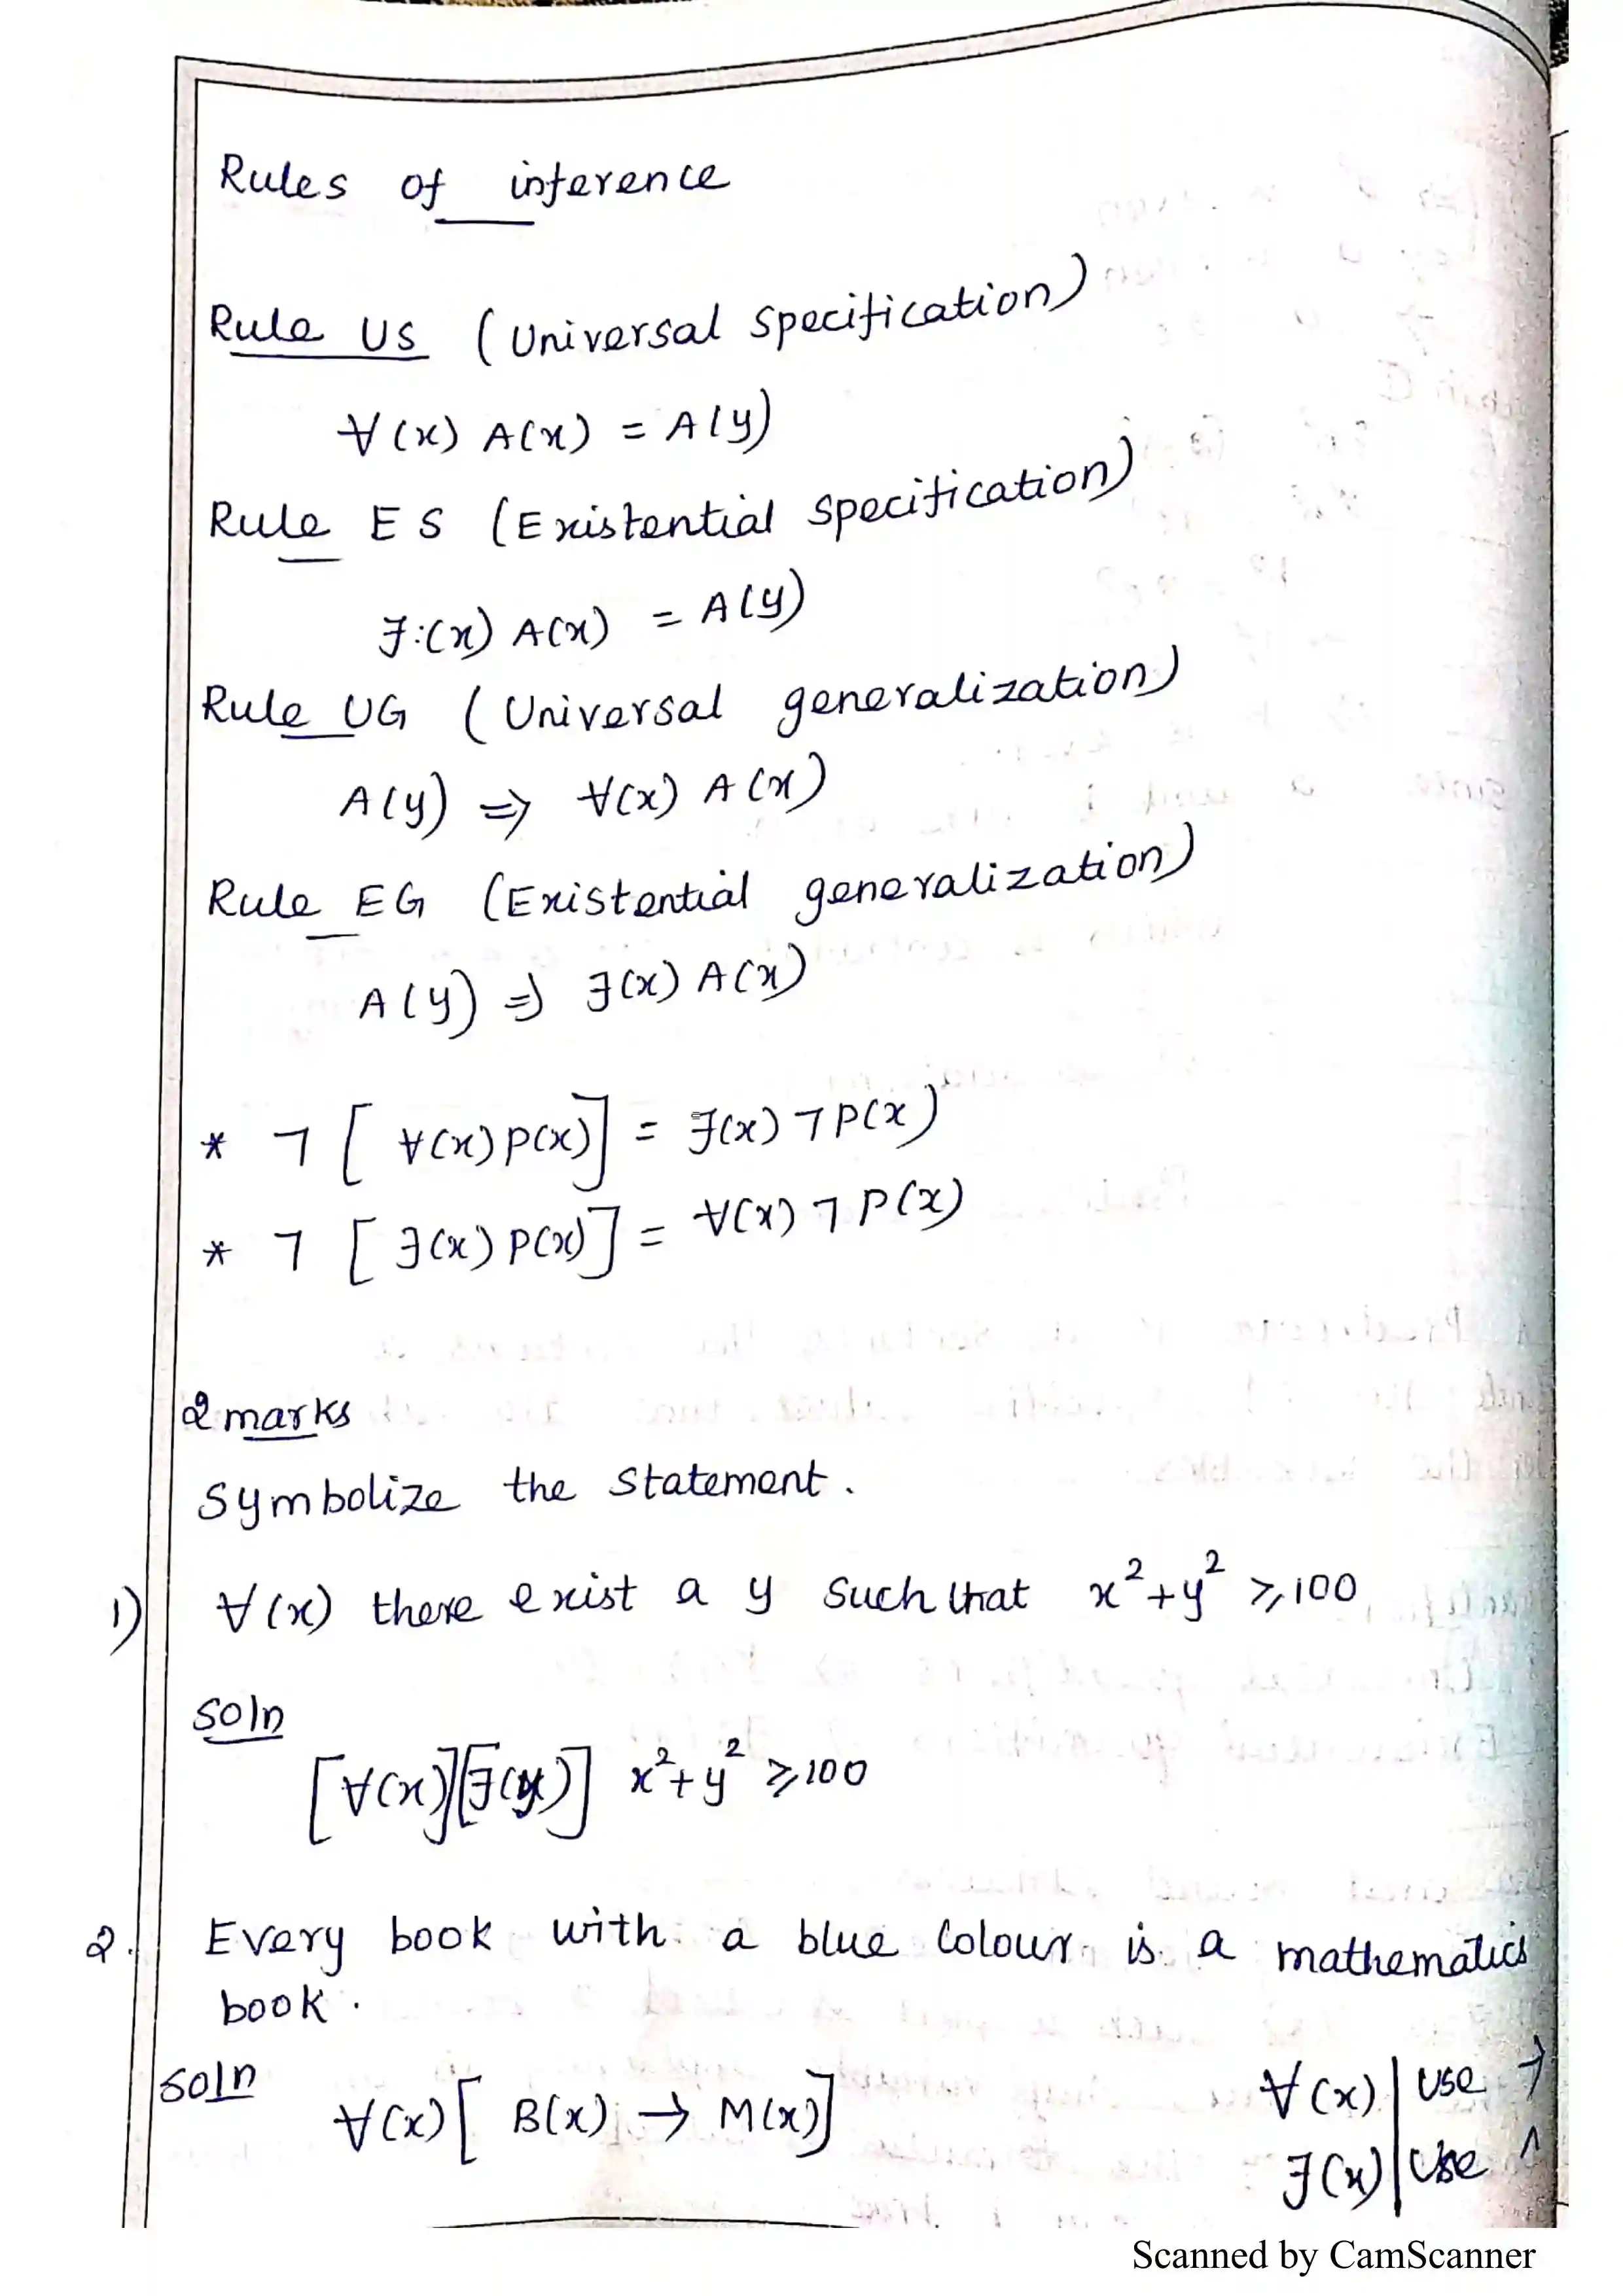 Rules of inference
Rule US (Universal Specification)
∀(x) A(x) = A(y)
Rule ES (Existential Specification)
∃:(x) A(x) = A(y)
Rule UG (Universal generalization)
A(y) ⇒ ∀(x) A(x)
Rule EG (Existential generalization)
A(y) ⇒ ∃(x) A(x)
* ¬ [ ∀(x) P(x)] = ∃(x) ¬ P(x)
* ¬ [ ∃(x) P(x)] = ∀(x) ¬ P(x)
2 marks
Symbolize the Statement.
1) ∀(x) there exist a y Such that x²+y² ≥ 100
Soln
[∀(x)][∃(y)] x²+y² ≥ 100
2. Every book with a blue Colour is a mathematics
book.
Soln
∀(x) [ B(x) → M(x)]
∀(x) | Use →
∃(x) | Use ∧
Scanned by CamScanner